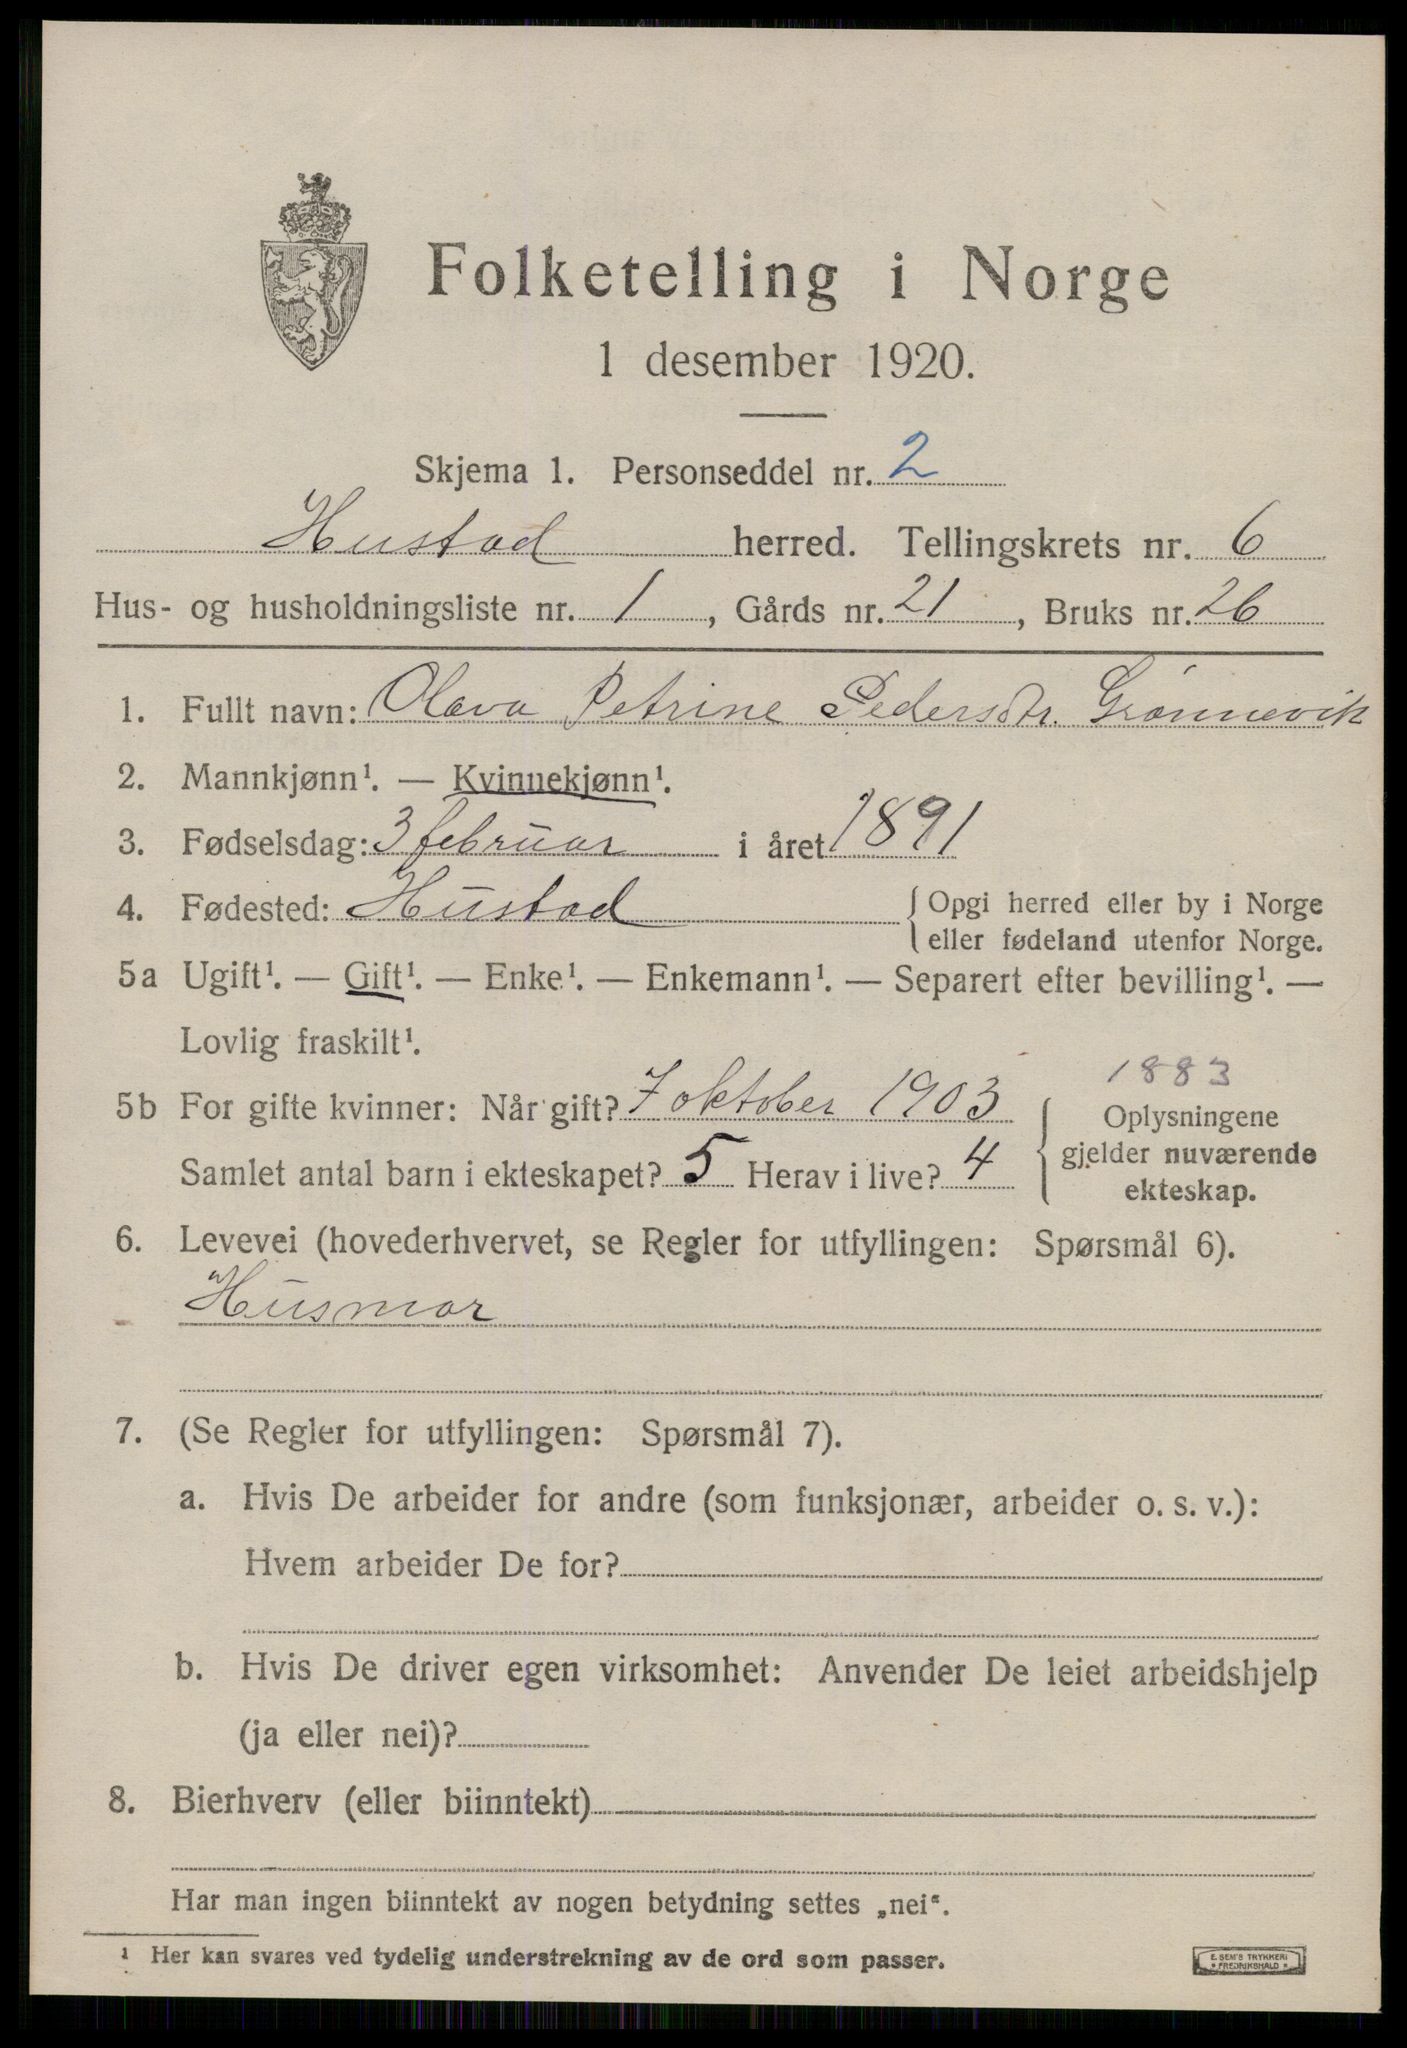 Folketelling i Norge
1 desember 1920.
Skjema 1. Personseddel nr. 2
Hustad herred. Tellingskrets nr. 6
Hus- og husholdningsliste nr. 1, Gårds nr. 21, Bruks nr. 26
1. Fullt navn: Olava Petrine Pedersdtr. Grønnevik
2. Mannkjønn¹. — Kvinnekjønn¹.
3. Fødselsdag: 3 februar i året 1891
4. Fødested: Hustad { Opgi herred eller by i Norge
eller fødeland utenfor Norge.
5a Ugift¹. — Gift¹. — Enke¹. — Enkemann¹. — Separert efter bevilling¹. —
Lovlig fraskilt¹.
1883
5b For gifte kvinner: Når gift? 7 oktober 1903 { Oplysningene
gjelder nuværende
Samlet antal barn i ekteskapet? 5 Herav i live? 4
ekteskap.
6. Levevei (hovederhvervet, se Regler for utfyllingen: Spørsmål 6).
Husmor
7. (Se Regler for utfyllingen: Spørsmål 7).
a. Hvis De arbeider for andre (som funksjonær, arbeider o. s. v.):
Hvem arbeider De for?
b. Hvis De driver egen virksomhet: Anvender De leiet arbeidshjelp
(ja eller nei)?
8. Bierhverv (eller biinntekt)
Har man ingen biinntekt av nogen betydning settes „nei“.
¹ Her kan svares ved tydelig understrekning av de ord som passer.
E. SEM'S TRYKKERI
* FREDRIKSHALD *